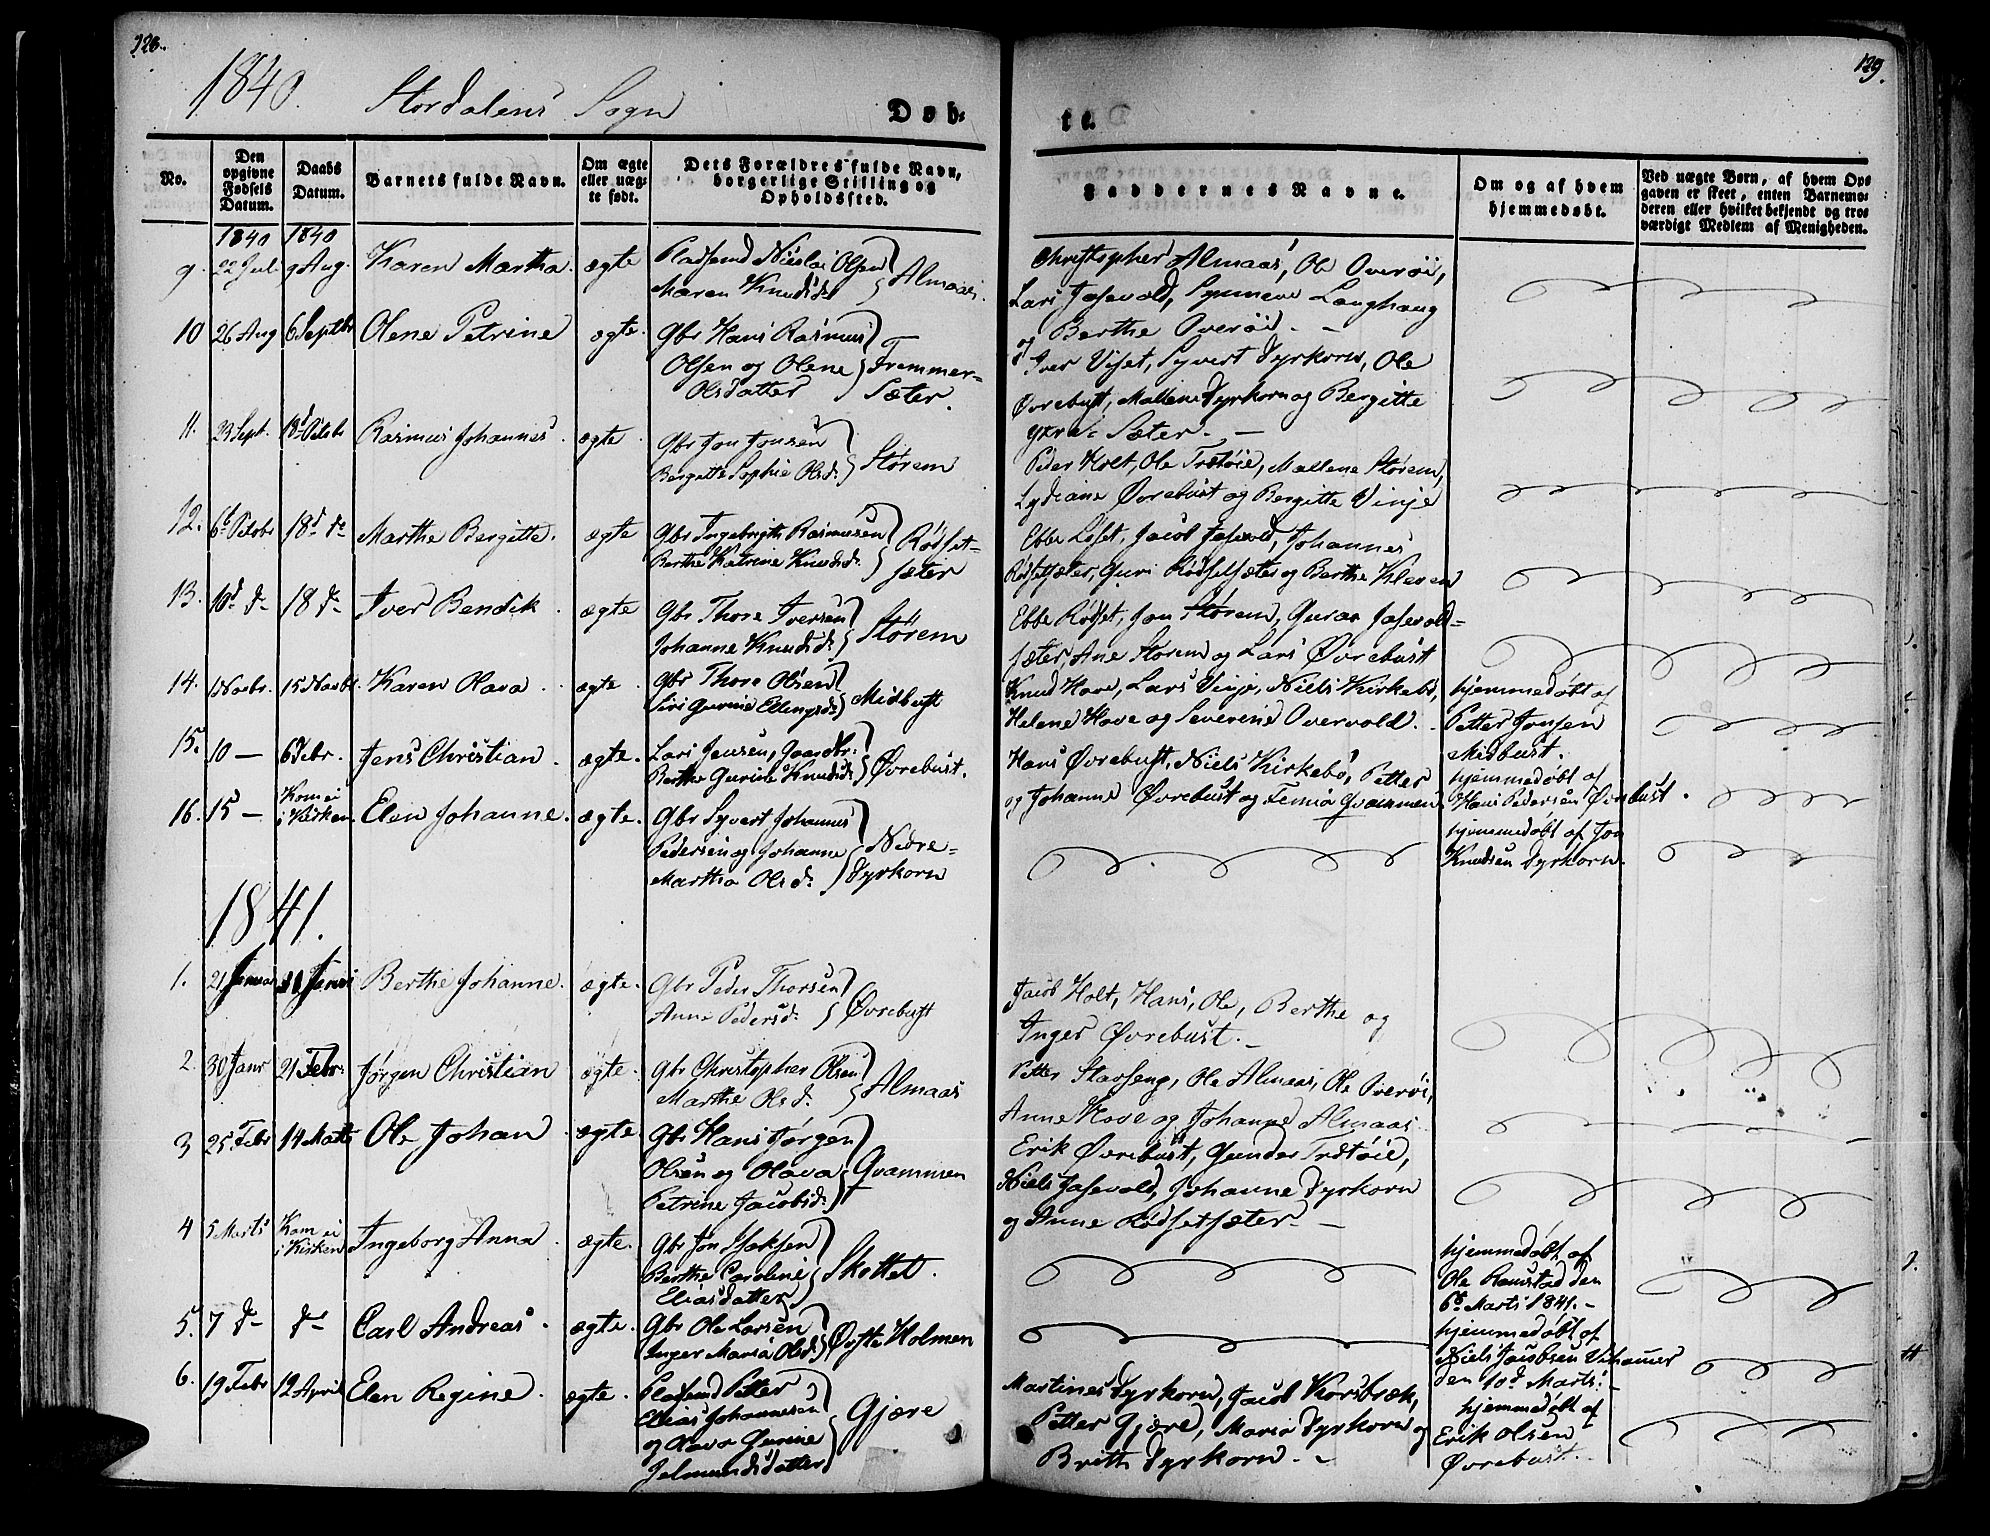 128.
129.
1840. Stordalens Sogn
Døb-
te.
No.
Den opgivne Fødsels Datum.
Daabs Datum.
Barnets fulde Navn.
Om ægte eller uægte født.
Dets Forældres fulde Navn, borgerlige Stilling og Opholdssted.
Faddernes Navne.
Om og af hvem hjemmedøbt.
Ved uægte Børn, af hvem Opgaven er skeet, enten Barnemoderen eller hvilket bekjendt og troværdigt Medlem af Menigheden.
1840 1840
9. 22 Jul. 9 Aug. Karen Martha. ægte Pladsmd Nicolai Olsen
Maren Knudsd. Almaas.
Christopher Almaas, Ole Overøi,
Lars Jasevold, Synneve Langhaug
og Berthe Overøie. -
10 26 Aug 6 Septbr Olene Petrine ægte. Gbr Hans Rasmus
Olsen og Olene Fremmer=
Olsdatter Sæter.
Iver Viset, Syvert Dyrkorn, Ole
Øvrebust, Mallene Dyrkorn og Bergitte
Sæter. -
11. 23 Sept. 18d Octobr Rasmus Johannes. ægte. Gbr Jon Jonsen
Bergitte Sophie Olsd. Størem
Peder Holt, Ole Trætøie, Mallene Størem,
Lydiane Øvrebust og Bergitte Vinje
12. 6t Octobr 18d do Marthe Bergitte. ægte Gbr Ingebrigth Rasmusen
Berthe Katrine Knudsd. Rødset=
sæter
Ebbe Løset, Jacob Jasevold, Johannes
Rødsetsæter, Guri Rødsetsæter og Berthe Kleven
13. 10d do 18 do Iver Bendik. ægte Gbr Thore Iversen
Johanne Knudsd. Størem
Ebbe Rødset, Jon Størem, Jasevold=
sæter, Ane Størem og Lars Øvrebust
14. 1 Novbr. 15 Novbr. Karen Olava. ægte. Gbr Thore Olsen
Siri Gurine Ellingsd. Midbust
Knud Hove, Lars Vinje, Niels Kirkebø,
Helene Hove og Severine Overvold.
hjemmedøbt af
Petter Jonsen
Midbust.
15. 10 - 6 Debr. Jens Christian. ægte. Lars Jensen, Gaardbr.
Berthe Gurine Knudsd. Øvrebust.
Hans Øvrebust, Niels Kirkebø, Petter
og Johanne Øvrebust og Qvammen.
hjemmedøbt af
Hans Pedersen Øvrebust.
16. 15 - Kom ei
i Kirken. Elen Johanne. ægte. Gbr Syvert Johannes
Pedersen og Johanne Nedre=
Martha Olsd. Dyrkorn
hjemmedøbt af Jon
Knudsen Dyrkorn.
1841.
1. 21 Januar Berthe Johanne. ægte. Gbr Peder Thorsen
Anne Pedersd. Øvrebust
Jacob Holt, Hans, Ole, Berthe og
Inger Øvrebust. -
2. 30 Janr 21 Febr. Jørgen Christian ægte. Gbr Christopher Olsen
Marthe Olsd. Almaas
Petter Starseng, Ole Almaas, Ole Overøi,
Anne Hove og Johanne Almaas.
3 25 Febr 14 Marts Ole Johan. ægte Gbr Hans Jørgen
Olsen og Olava Qvammen
Petrine Jacobsd.
Erik Øvrebust, Gunder Trætøie,
Niels Jasevold, Johanne Dyrkorn
og Anne Rødsetsæter. -
4 5 Marts Kom ei
i Kirken Ingeborg Anna. ægte. Gbr Jon Isaksen
Berthe Caroline Skottet.
Eliasdatter
hjemmedøbt af
Ole Ramstad den
6te Marts 1841. -
5. 7 do do Carl Andreas. ægte. Gbr Ole Larsen
Inger Maria Olsd. Øyte Holmen
hjemmedøbt af
Niels Jacobsen
den 10d Marts.
6. 19 Febr 12 April Elen Regine. ægte. Pladsmd Petter
Elias Johannesen
og Olava Gurine Gjære
Jelmundsdatter
Martines Dyrkorn, Jacob Korsbræk,
Petter Gjære, Maria Dyrkorn og
Brith Dyrkorn. -
hjemmedøbt af
Erik Olsen
Øvrebust. -